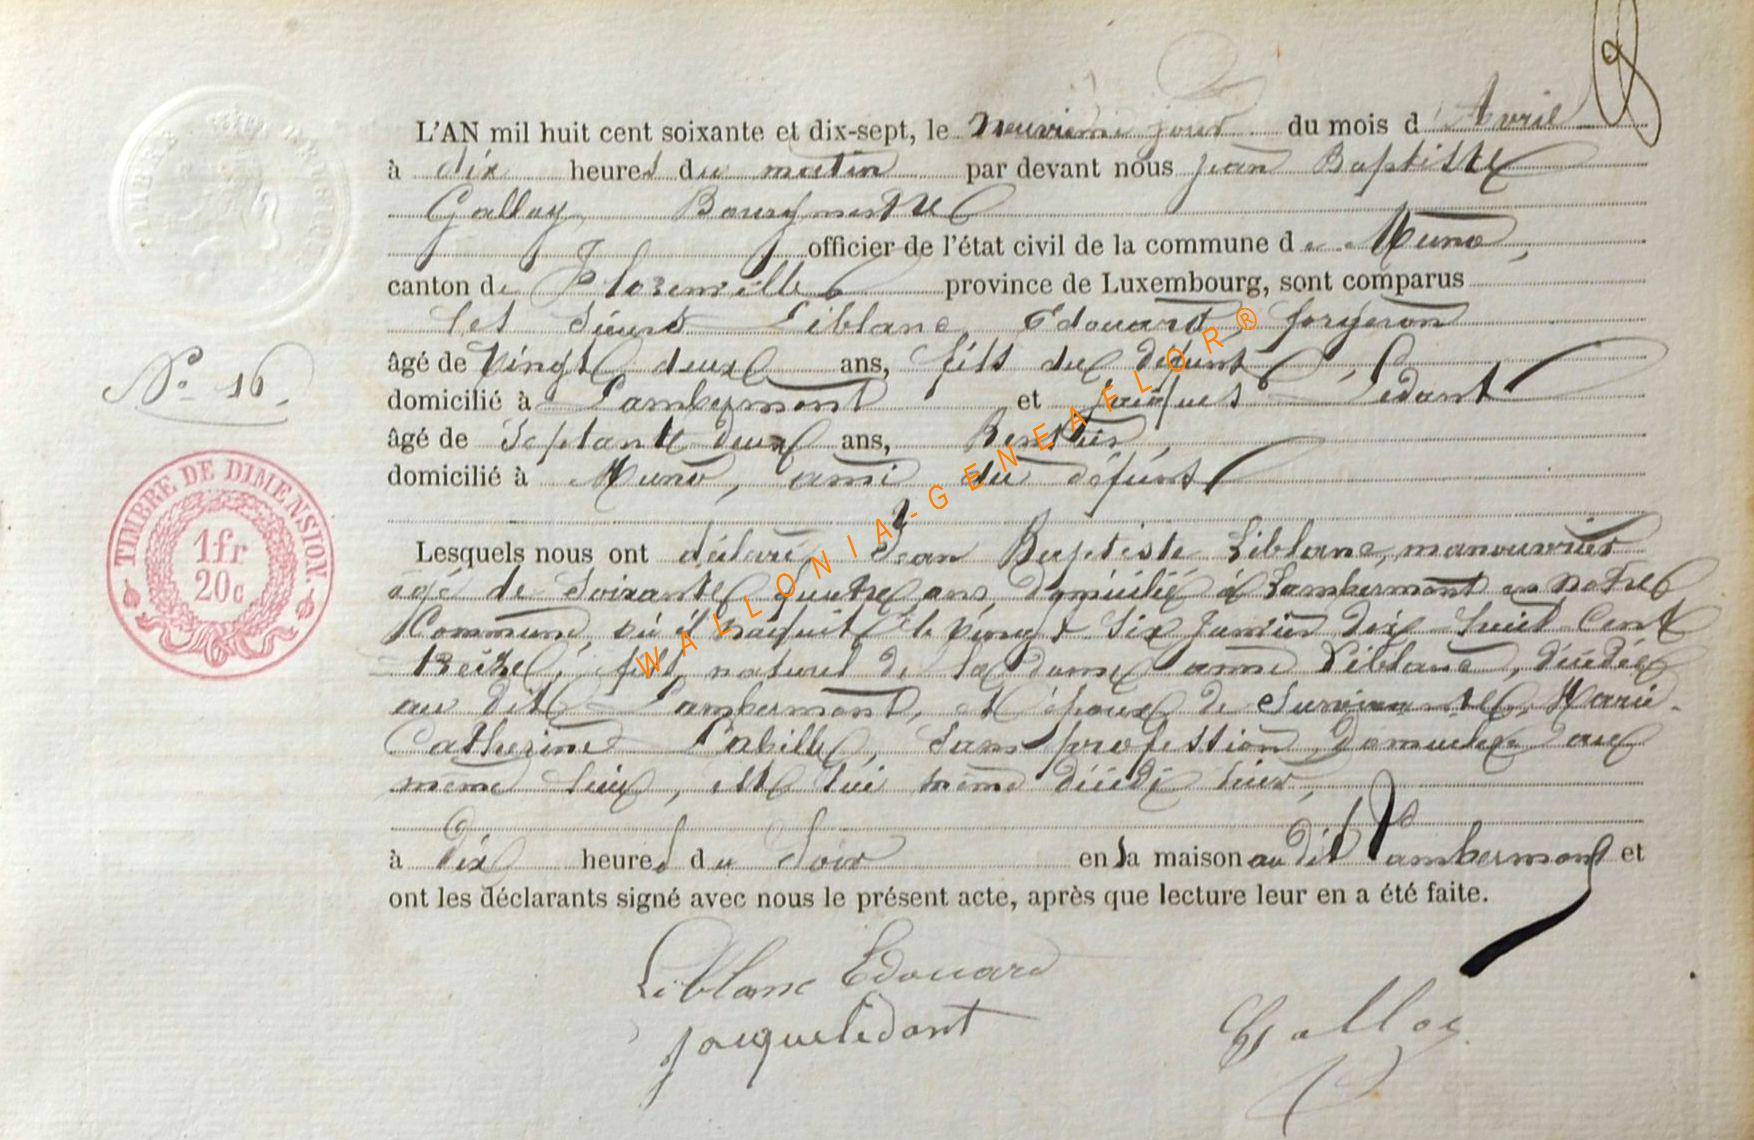 L'AN mil huit cent soixante et dix-sept, le neuvième jour du mois d'Avril
à dix heures du matin par devant nous Jean Baptiste
Galloy Bourgmestre
officier de l'état civil de la commune de Muno,
canton de Florenville province de Luxembourg, sont comparus
les sieurs Liblanc Edouard, forgeron
âgé de vingt deux ans, fils du défunt,
domicilié à Lambermont et Jacques Lédant
âgé de Septante deux ans, Rentier,
domicilié à Muno, ami du défunt
Lesquels nous ont déclaré Jean Baptiste Liblanc, manouvrier
agé de Soixante quatre ans, domicilié à Lambermont en notre
Commune, où il naquit le vingt six Janvier dix huit cent
treize, fils naturel de la dame anne Liblanc, décédée
au dit Lambermont, et époux de Survivante, Marie
Catherine Labille, Sans profession, domiciliée aux
meme lieux, este lui même décédé hier,
à dix heures du Soir en sa maison au dit Lambermont et
ont les déclarants signé avec nous le présent acte, après que lecture leur en a été faite.
Liblanc Edouard
Jacque Lédant
Galloy
No. 16.
TIMBRE DE DIMENSION.
1fr
20c
WALLONIA-GENEAELOR®